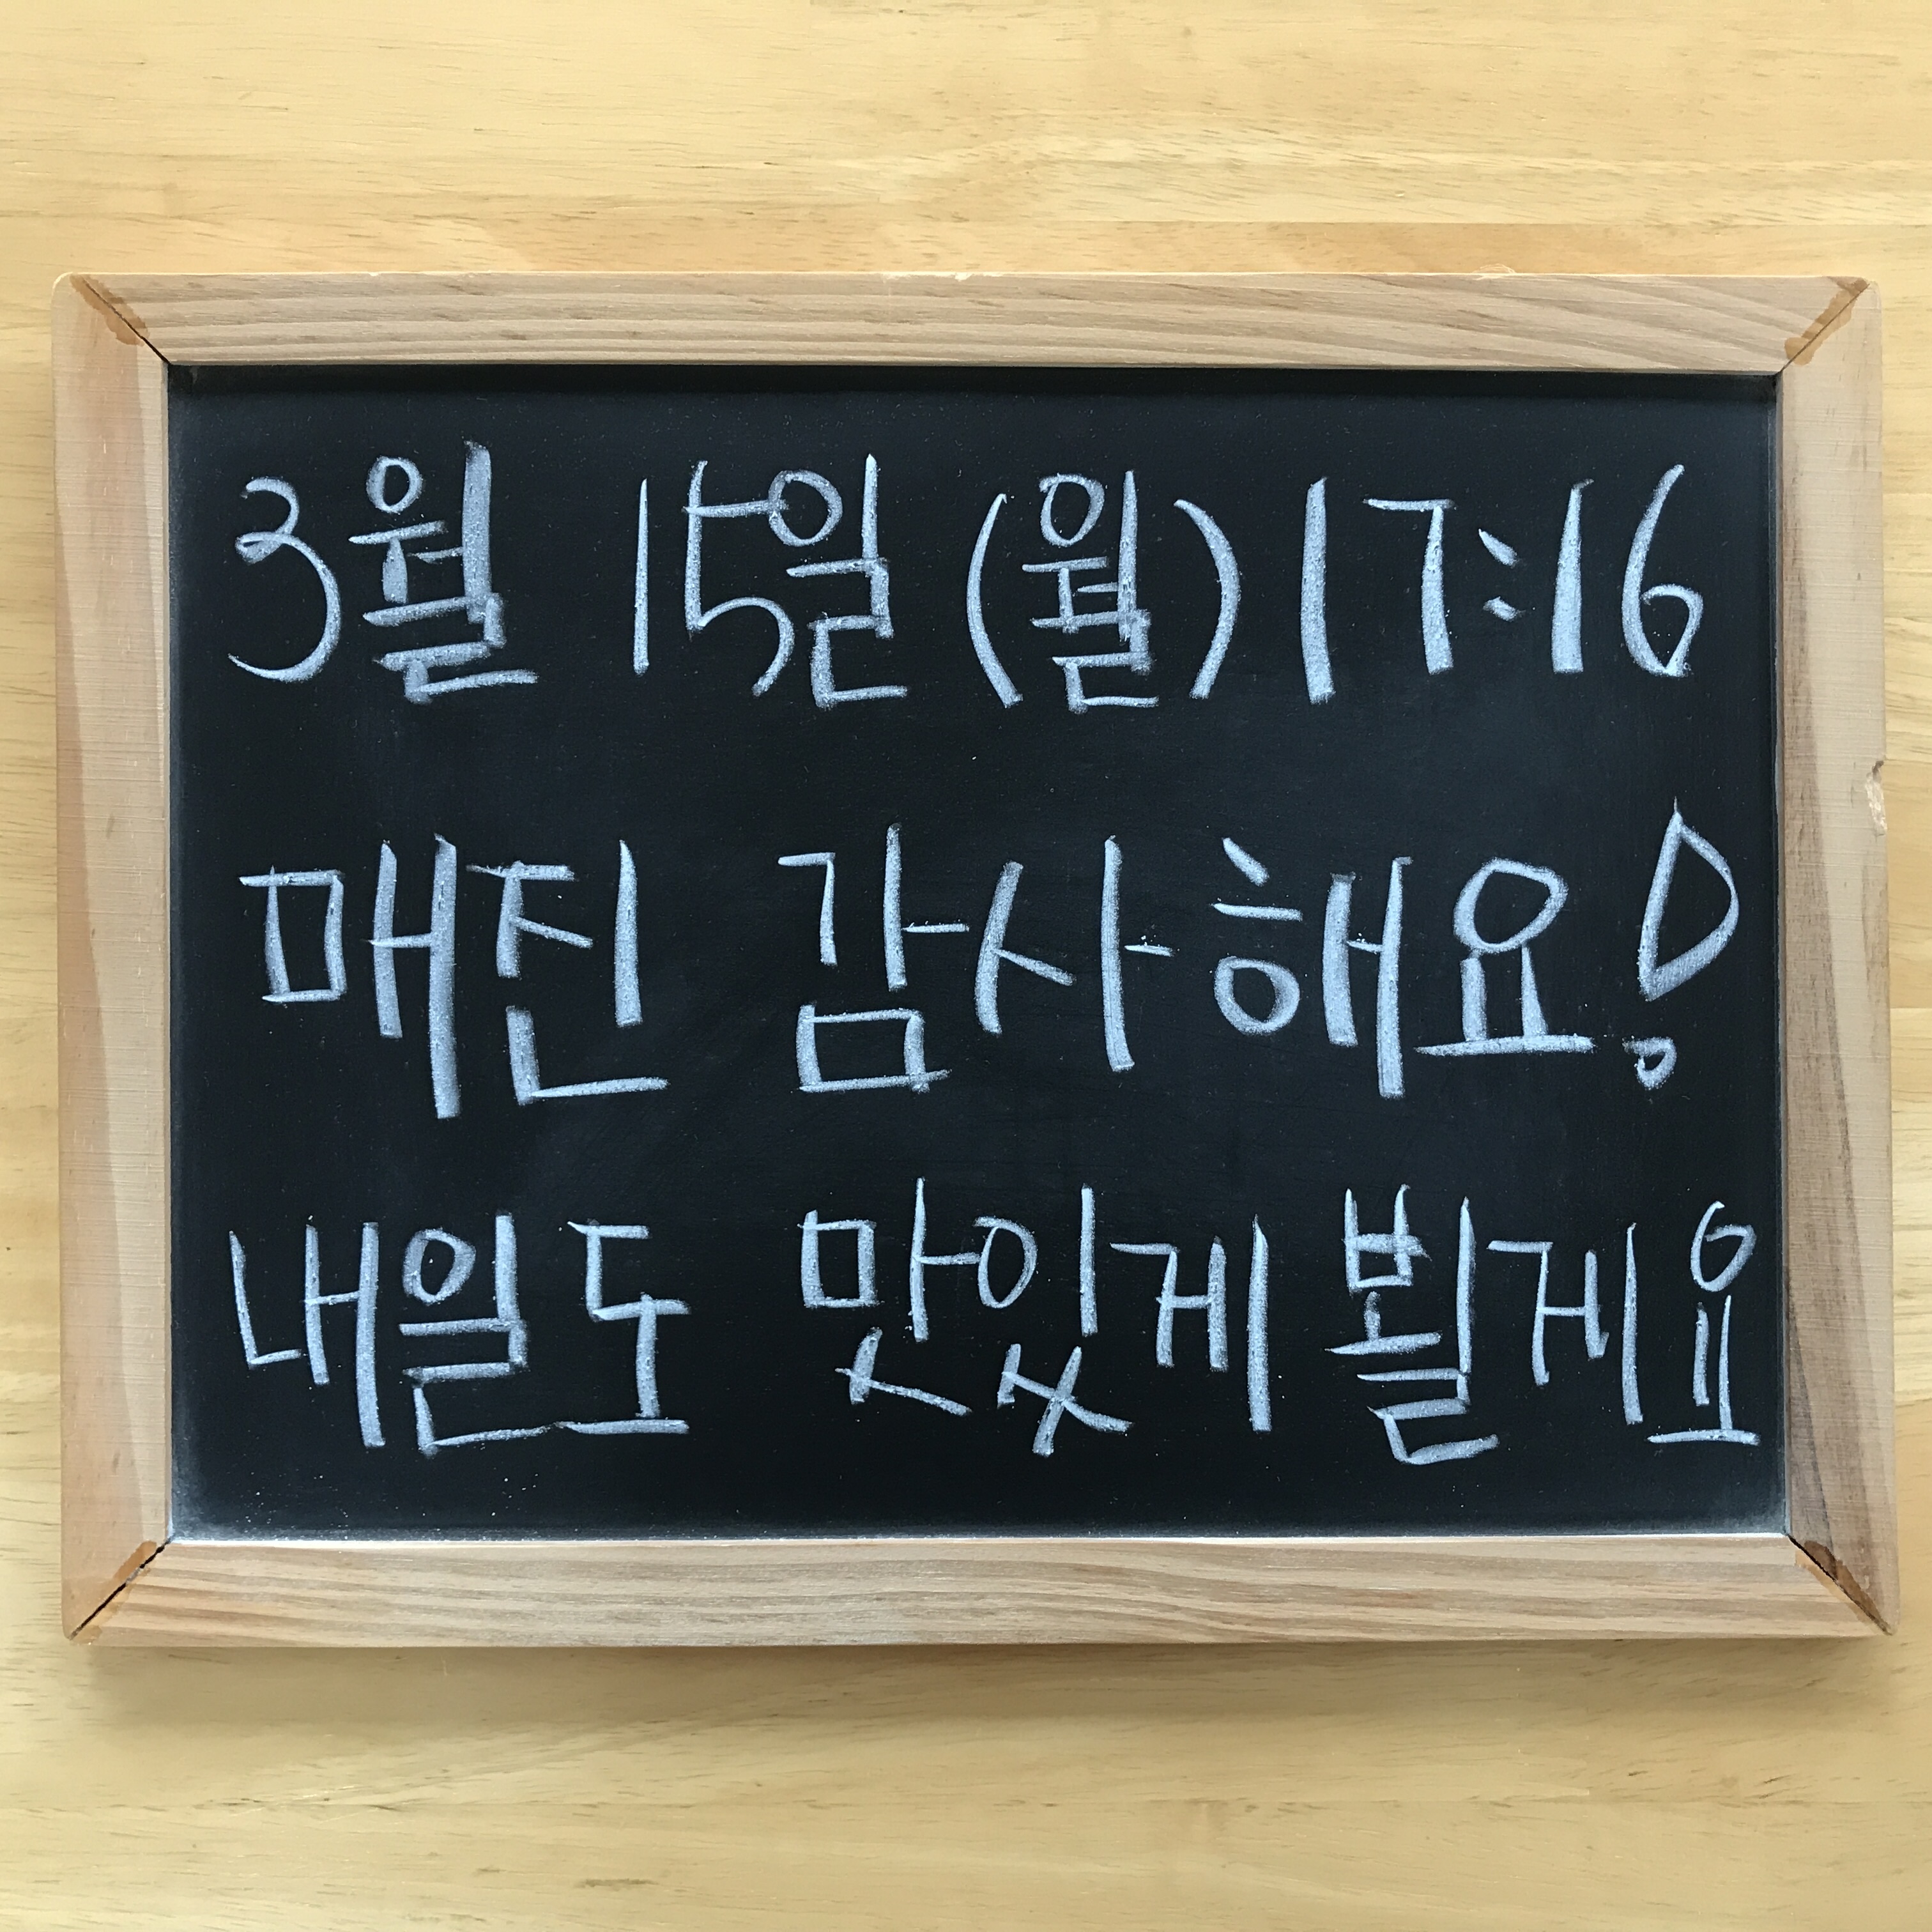 3월 15일 (월) 17:16
매진 감사해요!
내일도 맛있게 뵐게요